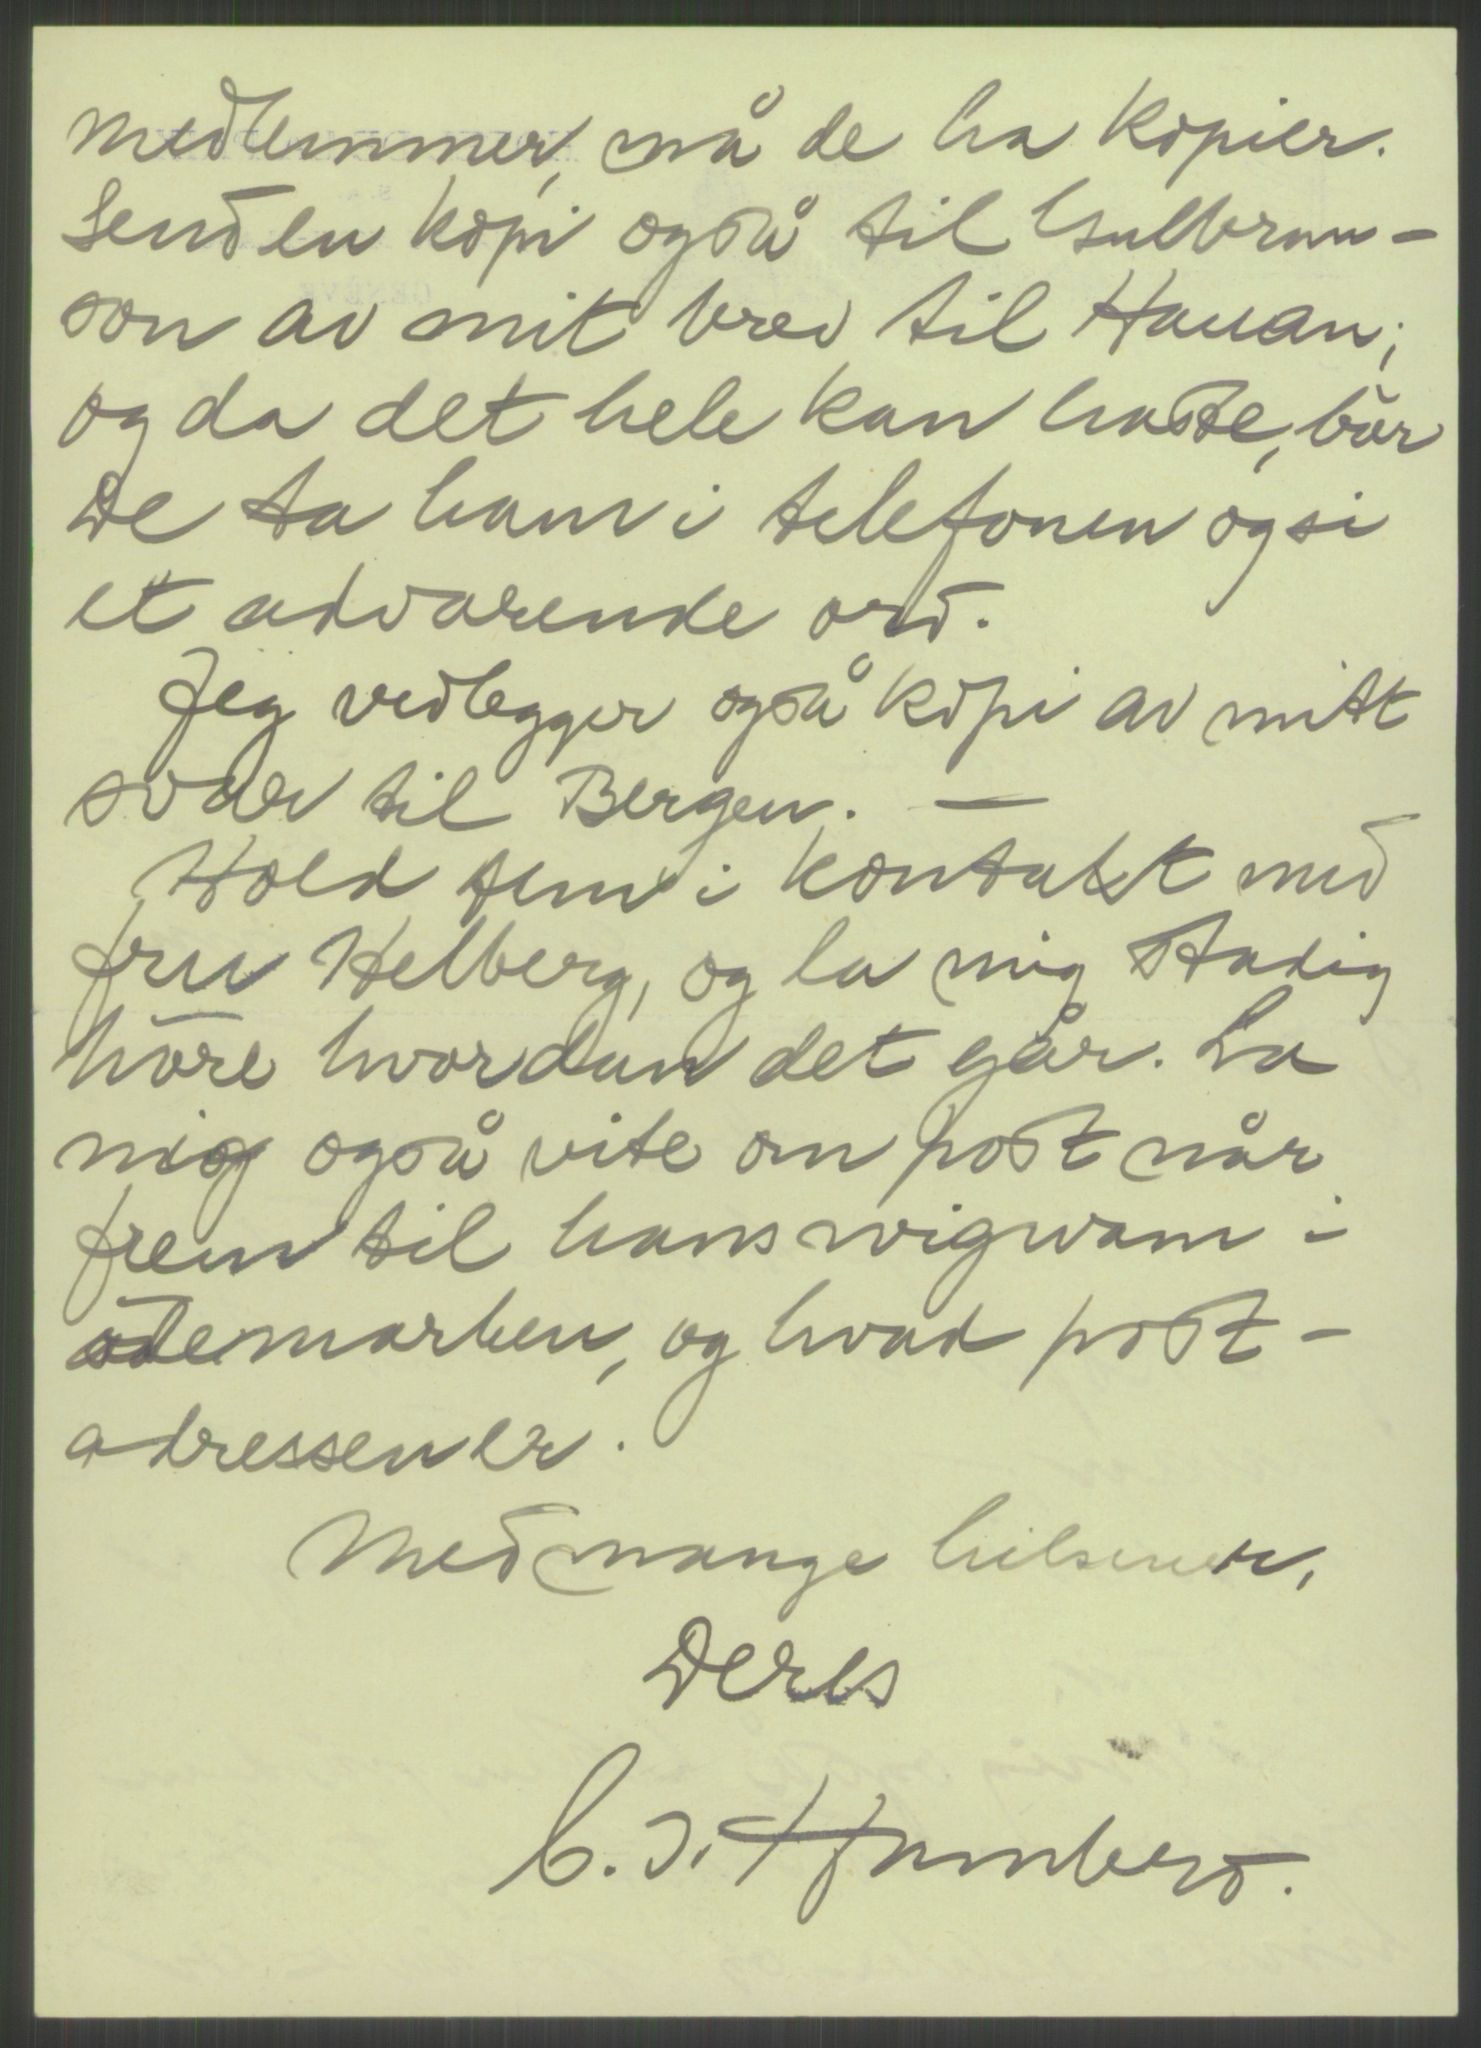 medlemmer, må de ha kopier.
Send en kopi også til Gulbran-
son av mit brev til Hauan;
og da det hele kan haste, bör
De ta ham i telefonen og si
et advarende ord.
Jeg vedlegger også kopi av mitt
svar til Bergen. —
Hold dem i kontakt med
fru Helberg, og la mig stadig
höre hvordan det går. La
mig også vite om post når
frem til hans wigwam i
ödemarken, og hvad post-
adressen er.
Med mange hilsener,
Deres
C. J. Hambro.
GENÈVE